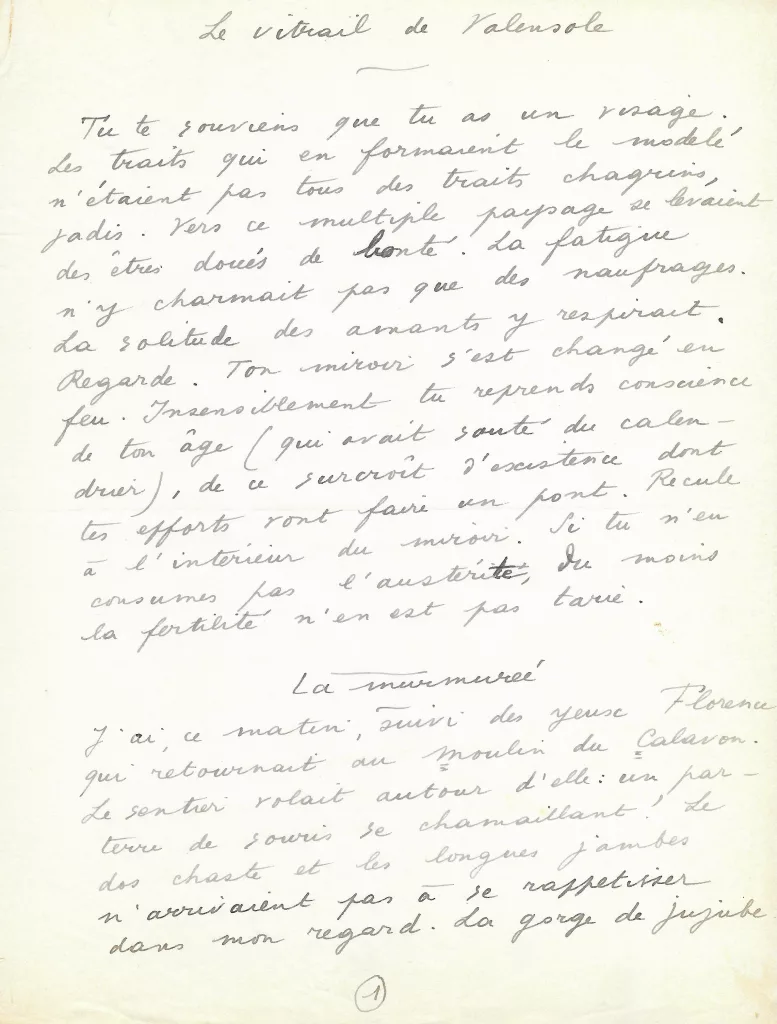 Le vitrail de Valensole
Tu te souviens que tu as un visage.
Les traits qui en formaient le modelé
n'étaient pas tous des traits chagrins,
jadis. Vers ce multiple paysage se levaient
des êtres doués de bonté. La fatigue
n'y charmait pas que des naufrages.
La solitude des amants y respirait.
Regarde. Ton miroir s'est changé en
feu. Insensiblement tu reprends conscience
de ton âge (qui avait sauté du calen-
drier), de ce surcroît d'existence dont
tes efforts vont faire un pont. Recule
à l'intérieur du miroir. Si tu n'en
consumes pas l'austérité, du moins
la fertilité n'en est pas tarie.
La murmurée
J'ai, ce matin, suivi des yeux Florence
qui retournait au moulin du Calavon.
Le sentier volait autour d'elle: un par-
terre de souris se chamaillant! Le
dos chaste et les longues jambes
n'arrivaient pas à se rappetisser
dans mon regard. La gorge de jujube
1